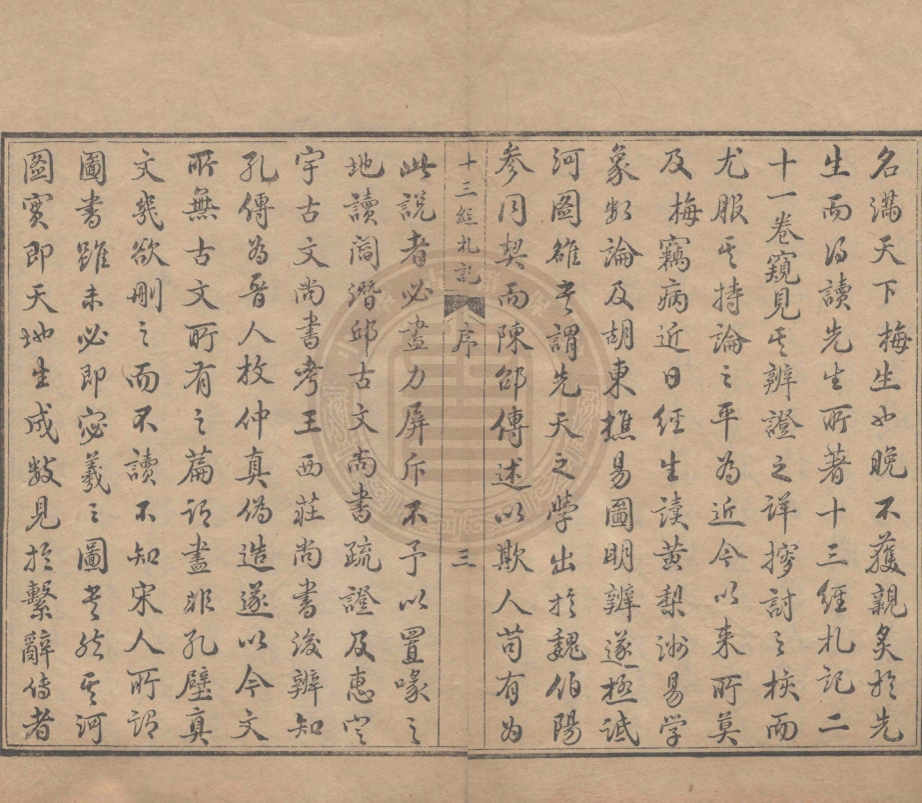 名滿天下梅生也晚不獲親炙於先
生而得讀先生所著十三經札記二
十一卷窺見其辨證之詳搜討之核而
尤服其持論之平為近今以來所莫
及梅竊病近日經生讀黃梨洲易學
象數論及胡東樵易圖明辨遂極詆
河圖雒書謂先天之學出於魏伯陽
參同契而陳邵傳述以欺人苟有為
十三經札記 序 三
此說者必盡力屏斥不予以置喙之
地讀閻潛邱古文尚書疏證及惠定
宇古文尚書考王西莊尚書後辨知
孔傳為晉人枚仲真偽造遂以今文
所無古文所有之篇謂盡非孔壁真
文幾欲刪之而不讀不知宋人所謂
圖書雖未必即宓羲之圖書然其河
圖實即天地生成數見於繫辭傳者